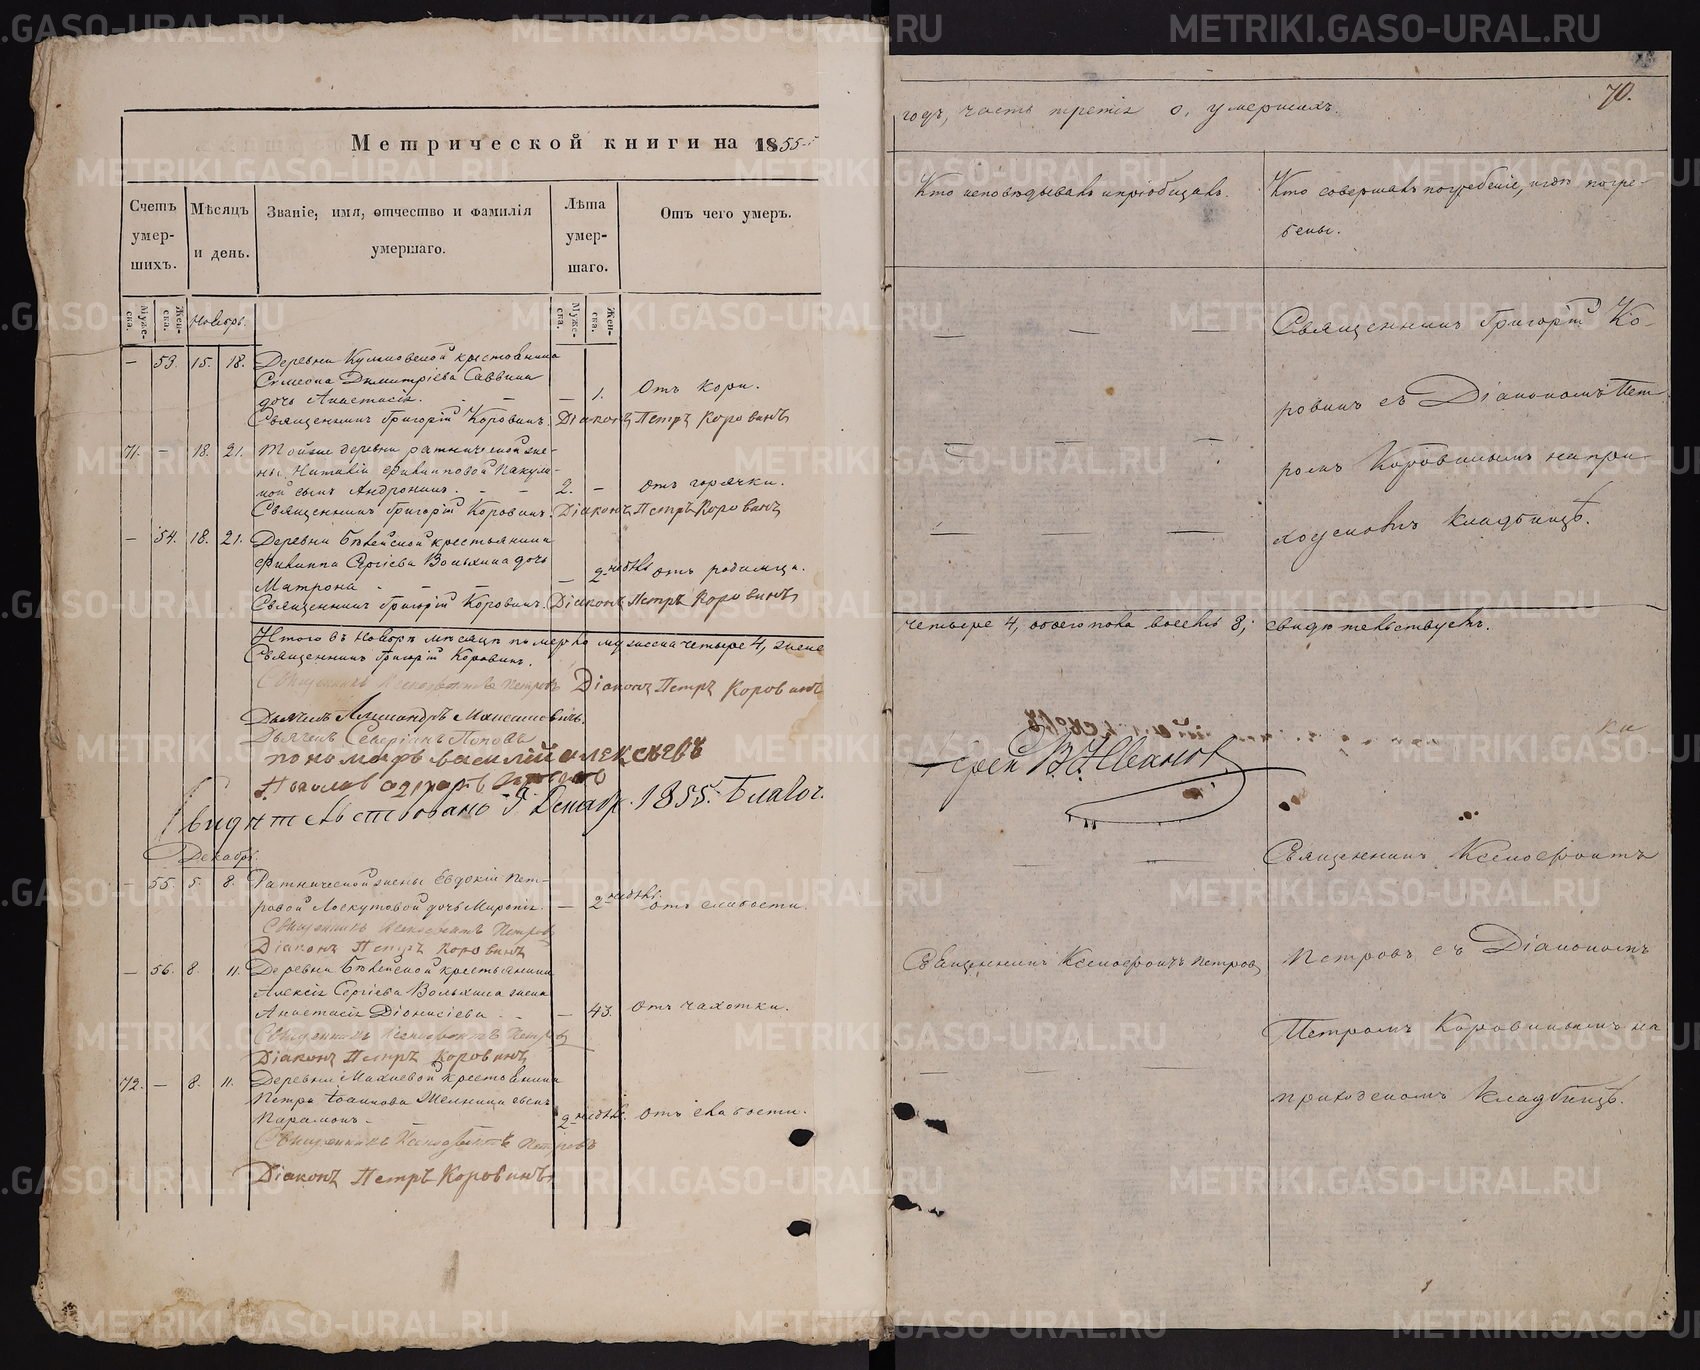 Метрической книги на 1855-й
Счетъ умер- шихъ.
Мѣсяцъ и день.
Званіе, имя, отчество и фамилія умершаго.
Лѣта умер- шаго.
Отъ чего умеръ.
Муже- ска.
Жен- ска.
Ноябрь.
Муже- ска.
Жен- ска.
— 53. 15. 18. Деревни крестьянина
Симеона Димитріева Саввина
дочь Анастасія. — — 1. Отъ кори.
Священникъ Григорій Коровинъ. Діаконъ Петръ Коровинъ
71. — 18. 21. Той же деревни ратнической же-
ны Наталіи Филипповой
сынъ Андроникъ. — — 2. — Отъ горячки.
Священникъ Григорій Коровинъ. Діаконъ Петръ Коровинъ
— 54. 18. 21. Деревни крестьянина
Филиппа Сергіева Вольхина дочь
Матрона — — — 2 недѣль отъ родимца.
Священникъ Григорій Коровинъ. Діаконъ Петръ Коровинъ
Итого въ Ноябрѣ мѣсяцѣ померло мужеска четыре 4, женс
Священникъ Григорій Коровинъ.
Священникъ Ксенофонтъ Петровъ Діаконъ Петръ Коровинъ
Дьячекъ Александръ Максимовичъ.
Дьячекъ Северіанъ Поповъ
пономарь василій алексѣевъ
Пономарь
Свидѣтельствовано 9 Декабр. 1855. Благоч.
Декабрь.
— 55. 5. 8. Ратнической жены Евдокіи Пет-
ровой Лоскутовой дочь Миропія. — 2 недѣль. отъ слабости.
Священникъ Ксенофонтъ Петровъ
Діаконъ Петръ Коровинъ
— 56. 8. 11. Деревни крестьянина
Алексія Сергіева Вольхина жена
Анастасія Діонисіева. — — 43. Отъ чахотки.
Священникъ Ксенофонтъ Петровъ
Діаконъ Петръ Коровинъ
72. — 8. 11. Деревни Махневой крестьянина
Петра Іоаннова сынъ
Парамонъ. — 2 недѣль. Отъ слабости.
Священникъ Ксенофонтъ Петровъ
Діаконъ Петръ Коровинъ
70.
годъ, часть третія о, умершихъ.
Кто исповѣдывалъ и пріобщалъ.
Кто совершалъ погребеніе, и гдѣ погре-
бены.
— — —
Священникъ Григорій Ко-
ровинъ съ Діакономъ Пет
— — —
ромъ Коровинымъ на при
ходскомъ кладбищѣ.
— — —
четыре 4, обоего пола восемь 8; свидѣтельствуемъ.
В. Ивановъ
— —
Священникъ Ксенофонтъ
Священникъ Ксенофонтъ Петровъ
Петровъ съ Діакономъ
Петромъ Коровинымъ на
— —
приходскомъ кладбищѣ.
METRIKI.GASO-URAL.RU